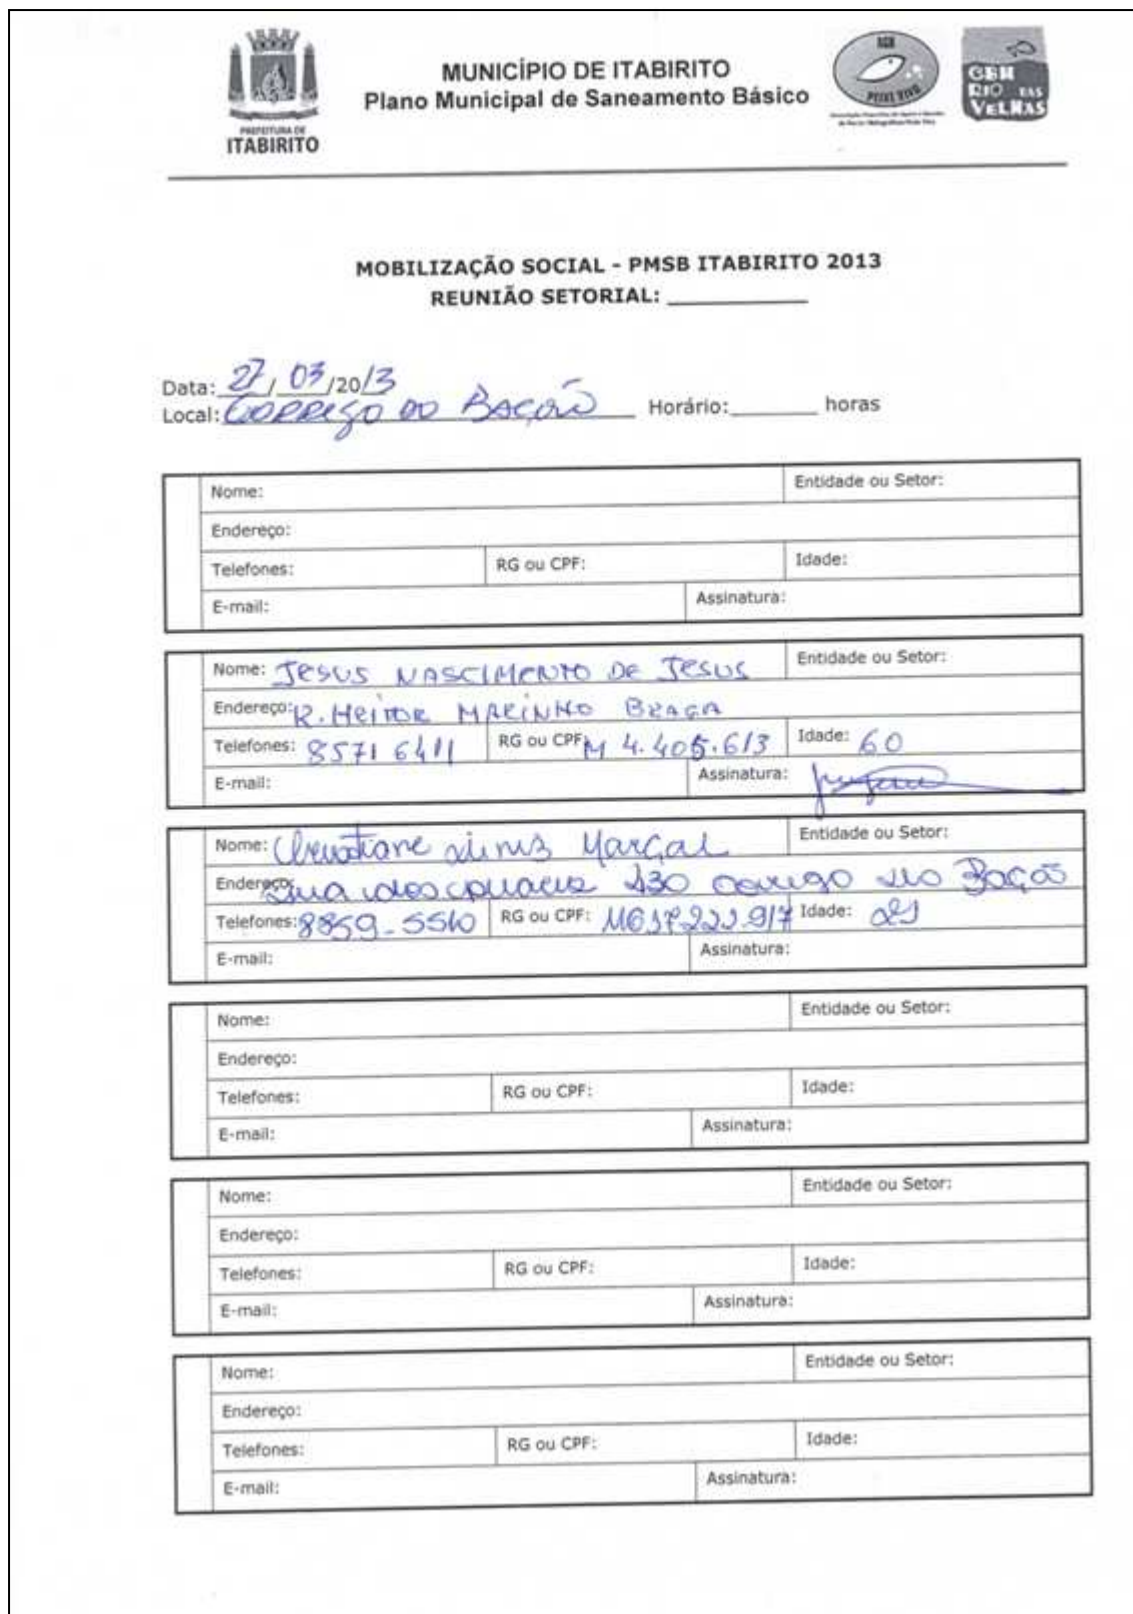 PREFEITURA DE
ITABIRITO
MUNICÍPIO DE ITABIRITO
Plano Municipal de Saneamento Básico
AGB
PEIXE VIVO
CBH
RIO DAS
VELHAS
MOBILIZAÇÃO SOCIAL - PMSB ITABIRITO 2013
REUNIÃO SETORIAL: __________
Data: 27/ 03 /2013
Local: CORREGO DO BAÇÃO Horário:_______ horas
Nome: Entidade ou Setor:
Endereço:
Telefones: RG ou CPF: Idade:
E-mail: Assinatura:
Nome: JESUS NASCIMENTO DE JESUS Entidade ou Setor:
Endereço: R. HEITOR MARINHO BRAGA
Telefones: 8571 6411 RG ou CPF: M 4.405.613 Idade: 60
E-mail: Assinatura:
Nome: Marçal Entidade ou Setor:
Endereço: Rua 130 Bação
Telefones: 8859-5510 RG ou CPF: MG17.222.917 Idade: 21
E-mail: Assinatura:
Nome: Entidade ou Setor:
Endereço:
Telefones: RG ou CPF: Idade:
E-mail: Assinatura:
Nome: Entidade ou Setor:
Endereço:
Telefones: RG ou CPF: Idade:
E-mail: Assinatura:
Nome: Entidade ou Setor:
Endereço:
Telefones: RG ou CPF: Idade:
E-mail: Assinatura: